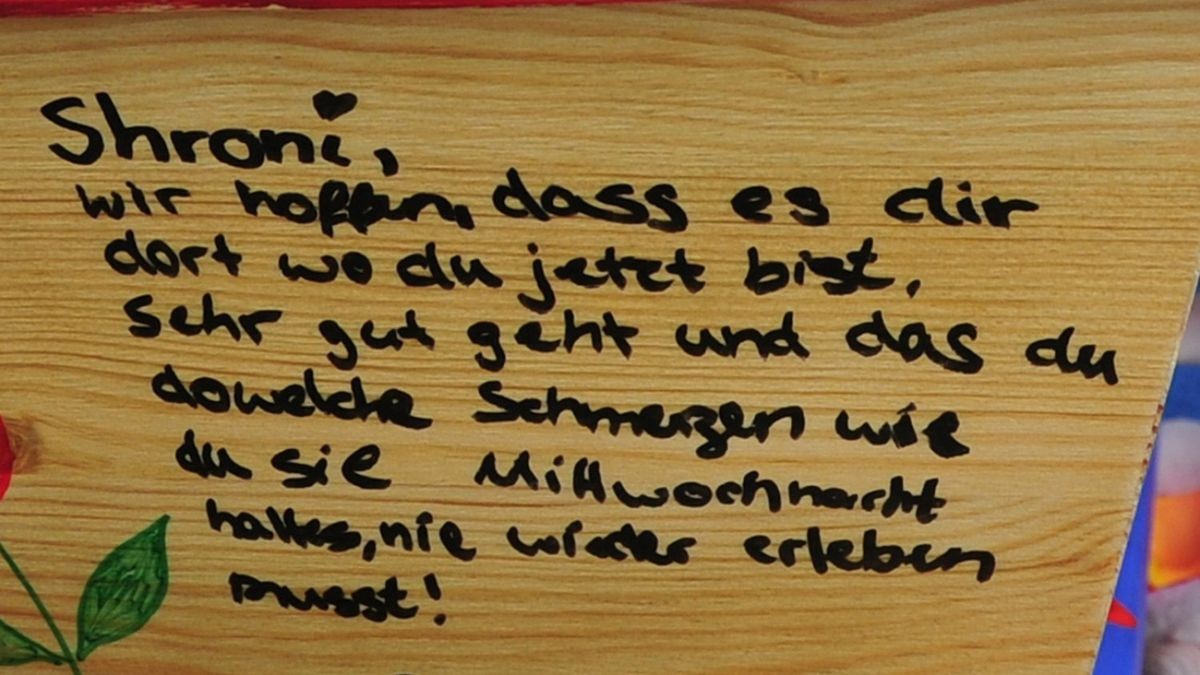 Shroni,
wir hoffen, dass es dir
dort wo du jetzt bist,
sehr gut geht und das du
dowelche Schmerzen wie
du sie Mittwochnacht
hattes, nie wieder erleben
musst!